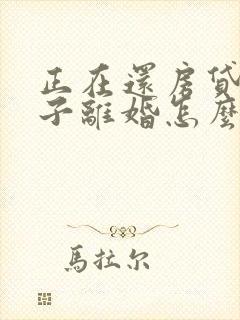 正在還房貸
子離婚怎麼
馬拉尔